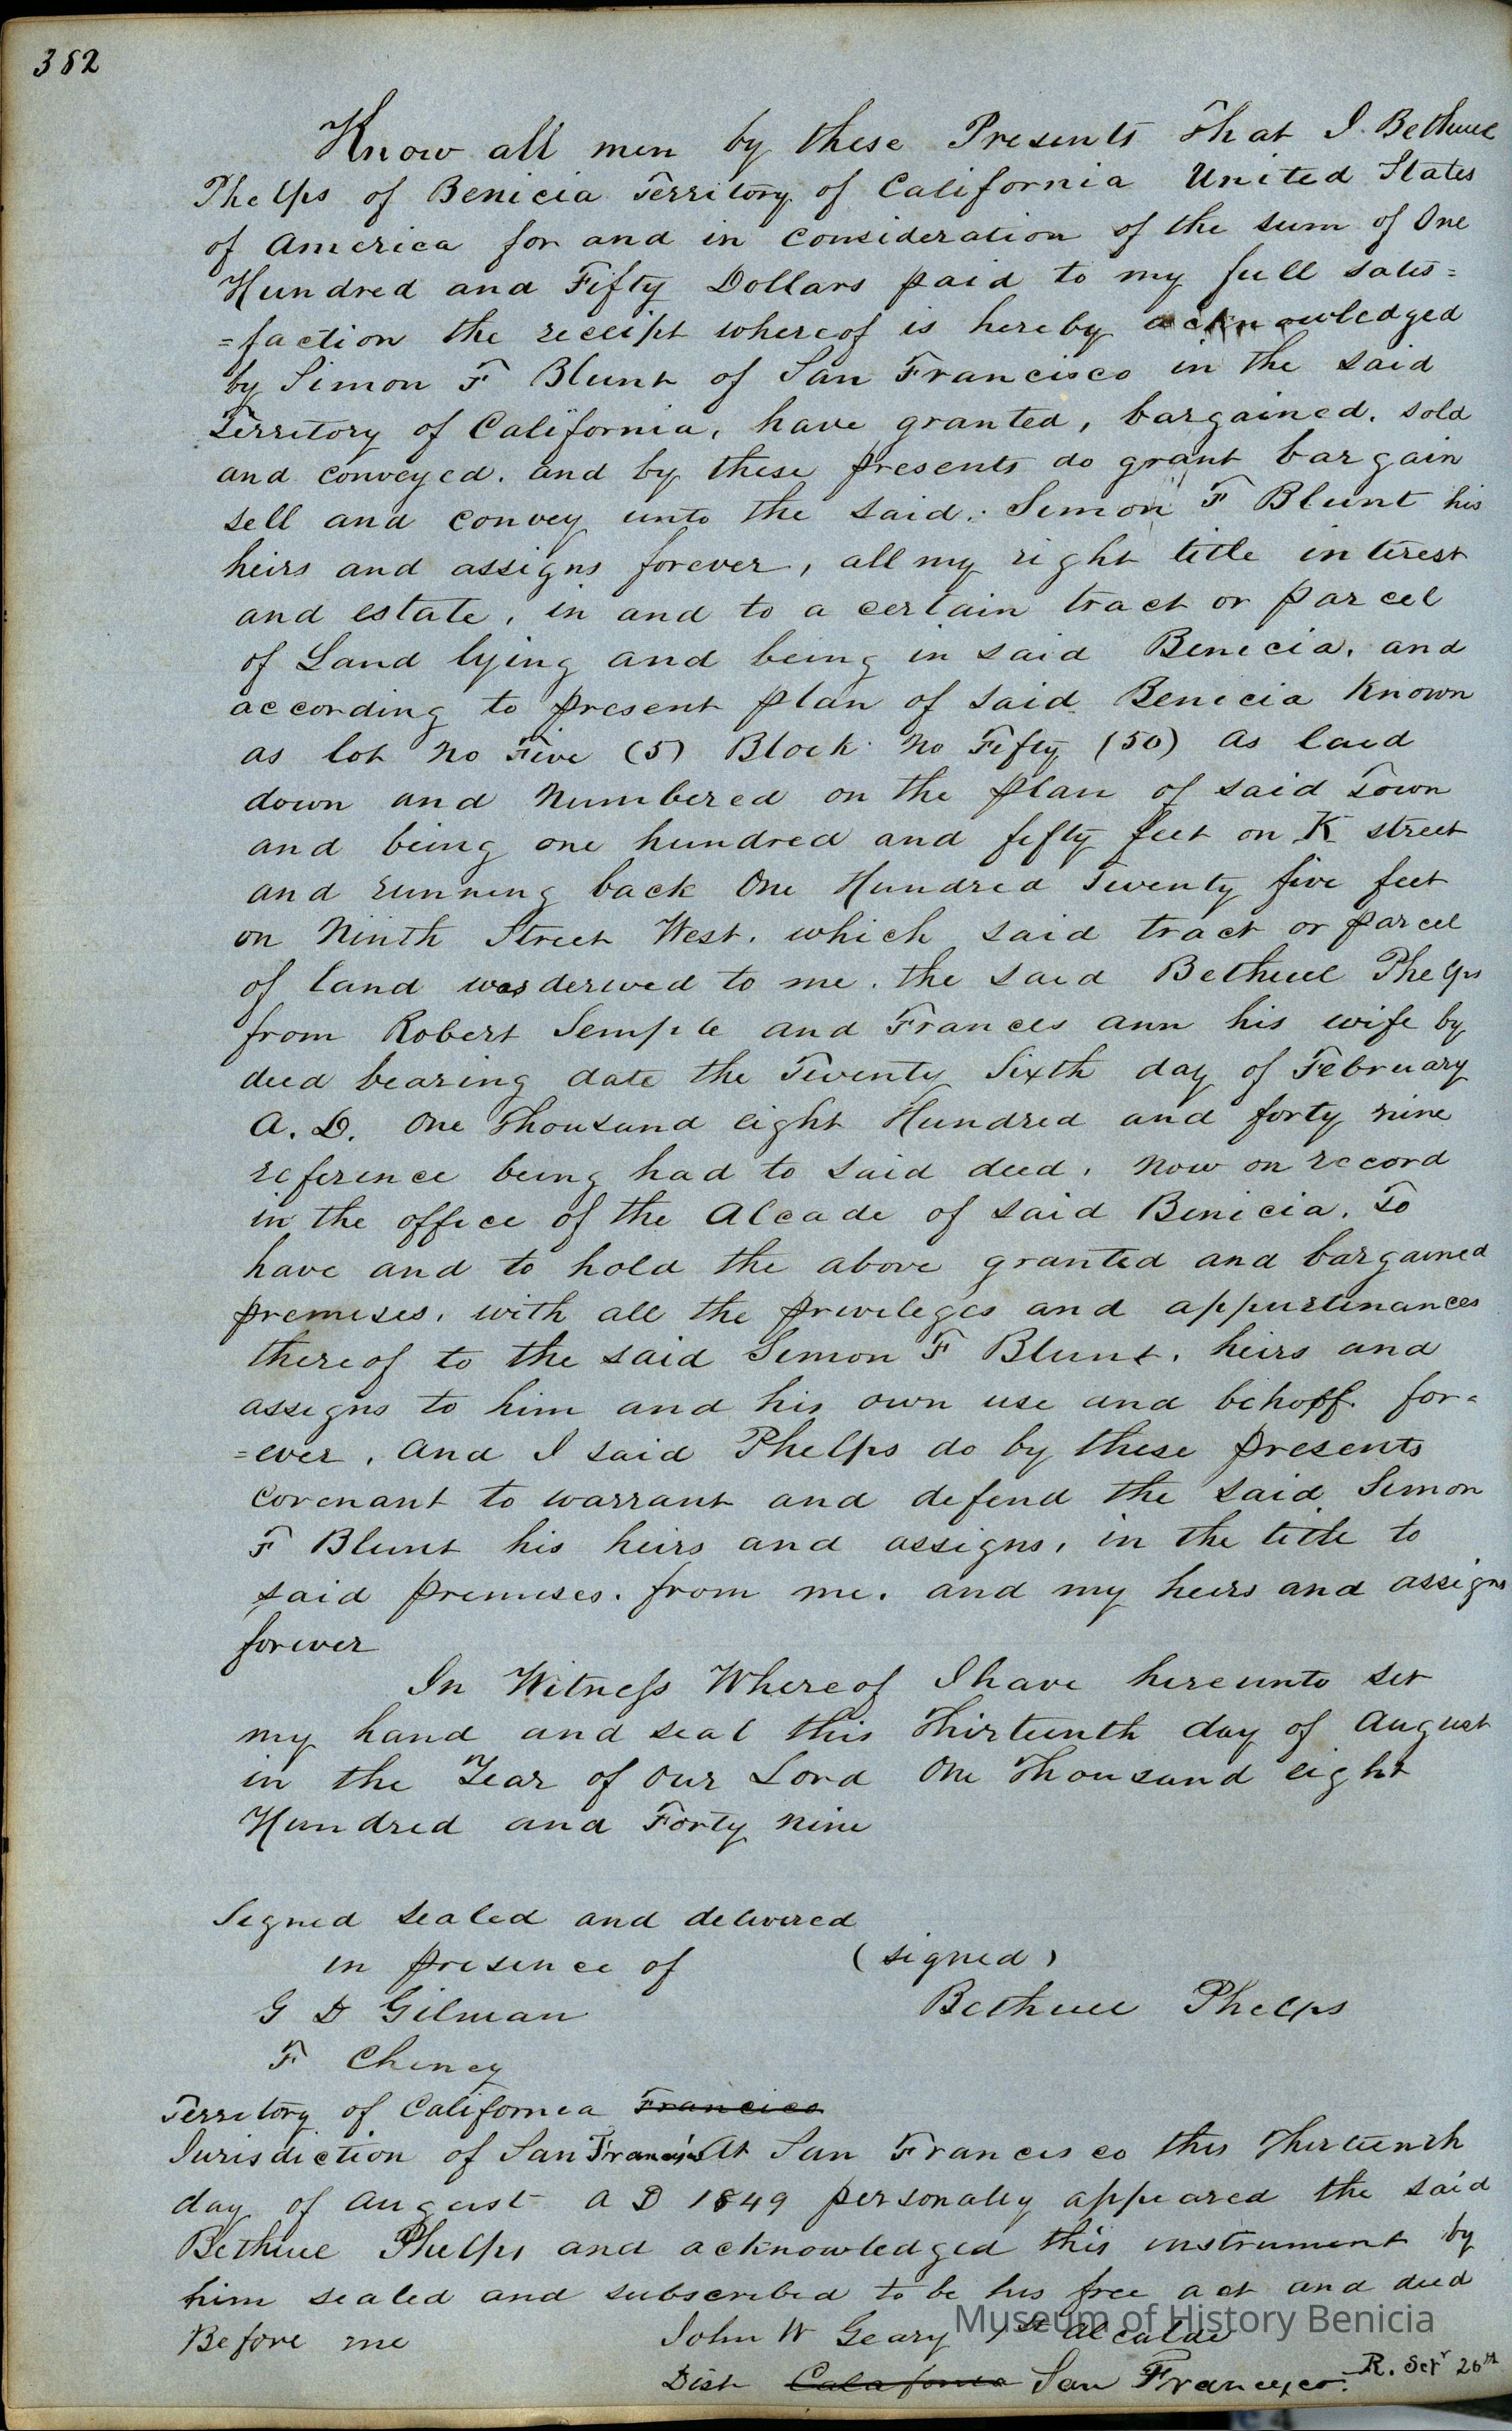 382
Know all men by these Presents That I Bethuel
Phelps of Benicia Territory of California United States
of America for and in Consideration of the sum of One
Hundred and Fifty Dollars paid to my full satis=
=faction the receipt whereof is hereby acknowledged
by Simon F Blunt of San Francisco in the said
Territory of California, have granted, bargained, sold
and conveyed. and by these presents do grant bargain
sell and convey unto the said. Simon F Blunt his
heirs and assigns forever, all my right title interest
and estate, in and to a certain tract or parcel
of Land lying and being in said Benicia, and
according to present plan of said Benicia Known
as lot No Five (5) Block No Fifty (50) as laid
down and Numbered on the plan of said Town
and being one hundred and fifty feet on K street
and running back One Hundred Twenty five feet
on Ninth Street West. which said tract or parcel
of land was derived to me. the said Bethuel Phelps
from Robert Semple and Frances Ann his wife by
deed bearing date the Twenty Sixth day of February
A. D. One Thousand eight Hundred and forty nine
reference being had to said deed, now on record
in the office of the Alcade of said Benicia. To
have and to hold the above granted and bargained
premises, with all the privileges and appurtinances
thereof to the said Simon F Blunt, heirs and
assigns to him and his own use and behoff. for=
=ever, and I said Phelps do by these presents
covenant to warrant and defend the said Simon
F Blunt his heirs and assigns, in the title to
said premises. from me. and my heirs and assigns
forever
In Witness Whereof I have hereunto set
my hand and seal this Thirteenth day of August
in the Year of Our Lord One Thousand eight
Hundred and Forty Nine
Signed sealed and delivered
in presence of (signed)
G D Gilman Bethuel Phelps
F Cheney
Territory of California Francisco
Jurisdiction of San Francisco At San Francisco this Thirteenth
day of August A D 1849 personally appeared the said
Bethuel Phelps and acknowledged this instrument by
him sealed and subscribed to be his free act and deed
Before me John W Geary 1st Alcalde
Dist California San Francisco. R. Sepr 26th
Museum of History Benicia